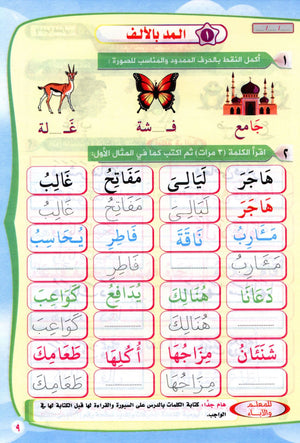 ١ المد بالألف
١ أكمل النقط بالحرف الممدود والمناسب للصورة :
جَامع فـ ـشة غَـ ـلة
٢ اقرأ الكلمة (٣ مرات) ثم اكتب كما في المثال الأول:
هَاجَرَ لَيَالِىَ مَفَاتِحُ غَالِبُ
هَاجَرَ لَيَالِىَ مَفَاتِحُ غَالِبُ
مَـَٔارِبُ نَاقَةَ فَاطِرِ يُحَاسِبُ
مَـَٔارِبُ فَاطِرِ
دَعَانَا هُنَالِكَ يُدَافِعُ كَوَاعِبَ
هُنَالِكَ كَوَاعِبَ
شَنَـَٔانُ مِزَاجُهَا أُكُلِهَا طَعَامِكَ
مِزَاجُهَا طَعَامِكَ
للمعلم والآباء
هام جدًا: كتابة الكلمات بالدرس على السبورة والقراءة لها قبل الكتابة لها في الواجب.
٩